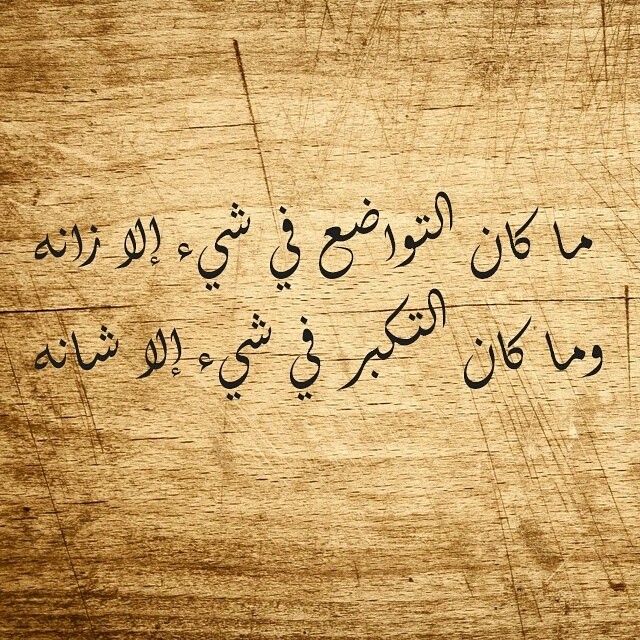 ما كان التواضع في شيء إلا زانه
وما كان التكبر في شيء إلا شانه